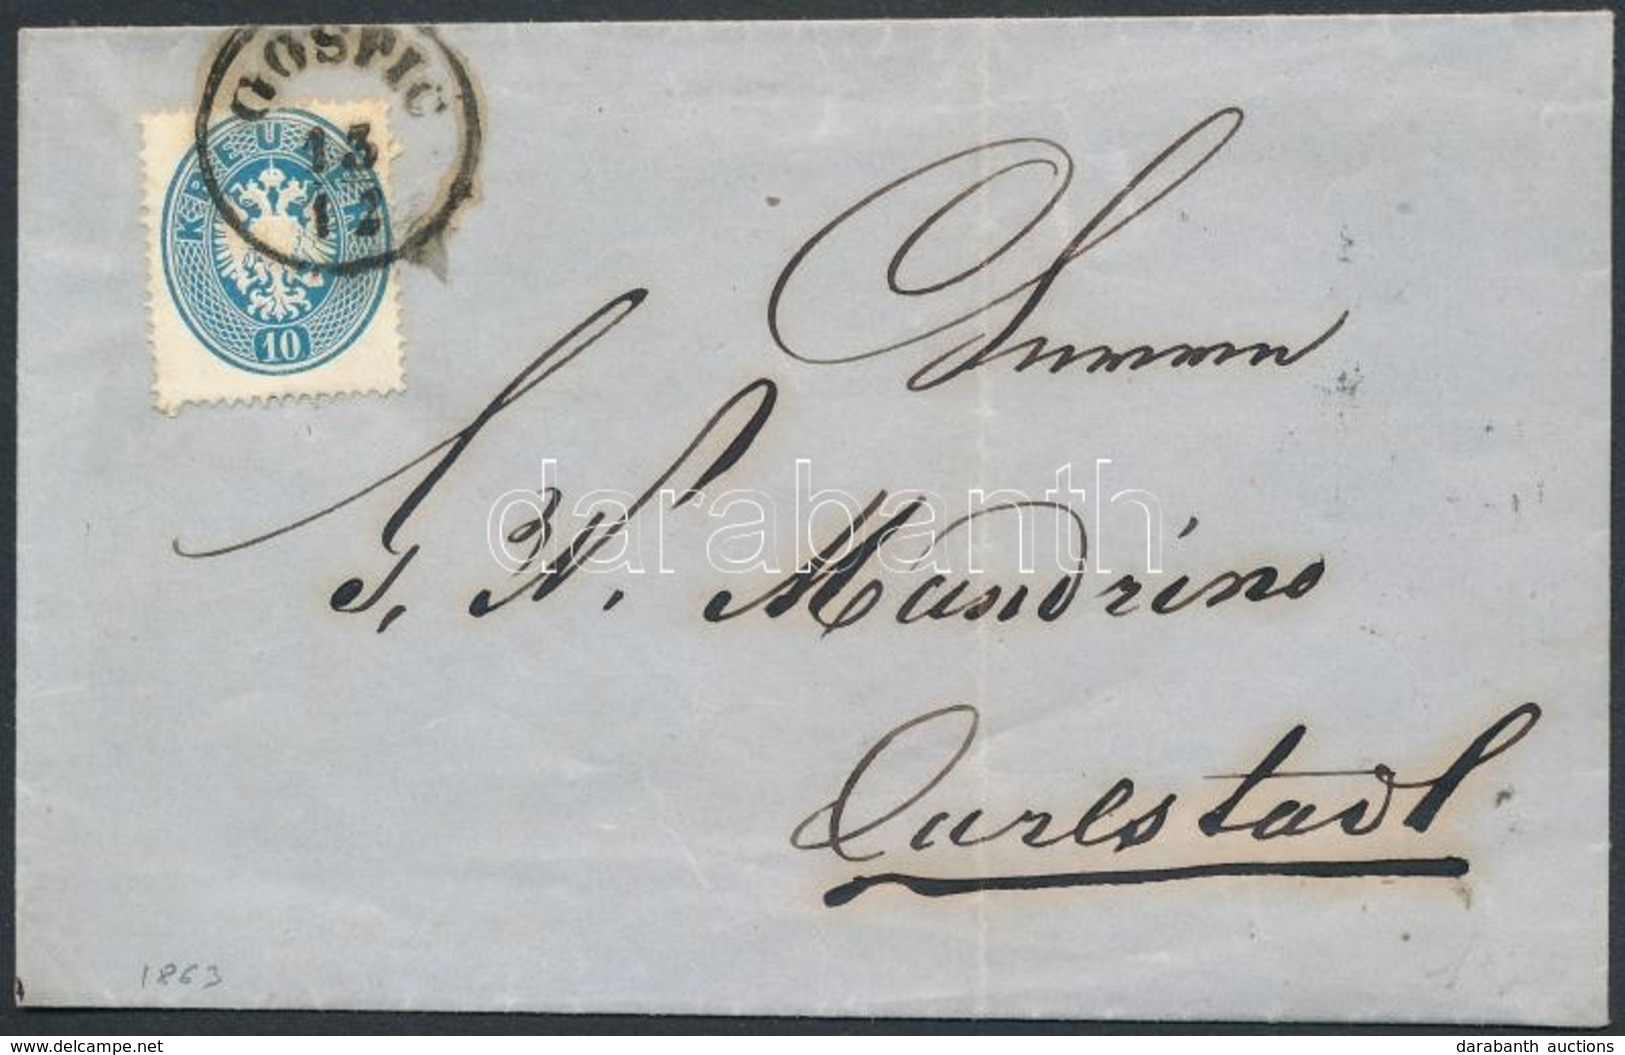 GOSPIC
13
12
KREUZER
10
darabanth
Mandrino
Carlstadt
1863
www.delcampe.net
darabanth auctions